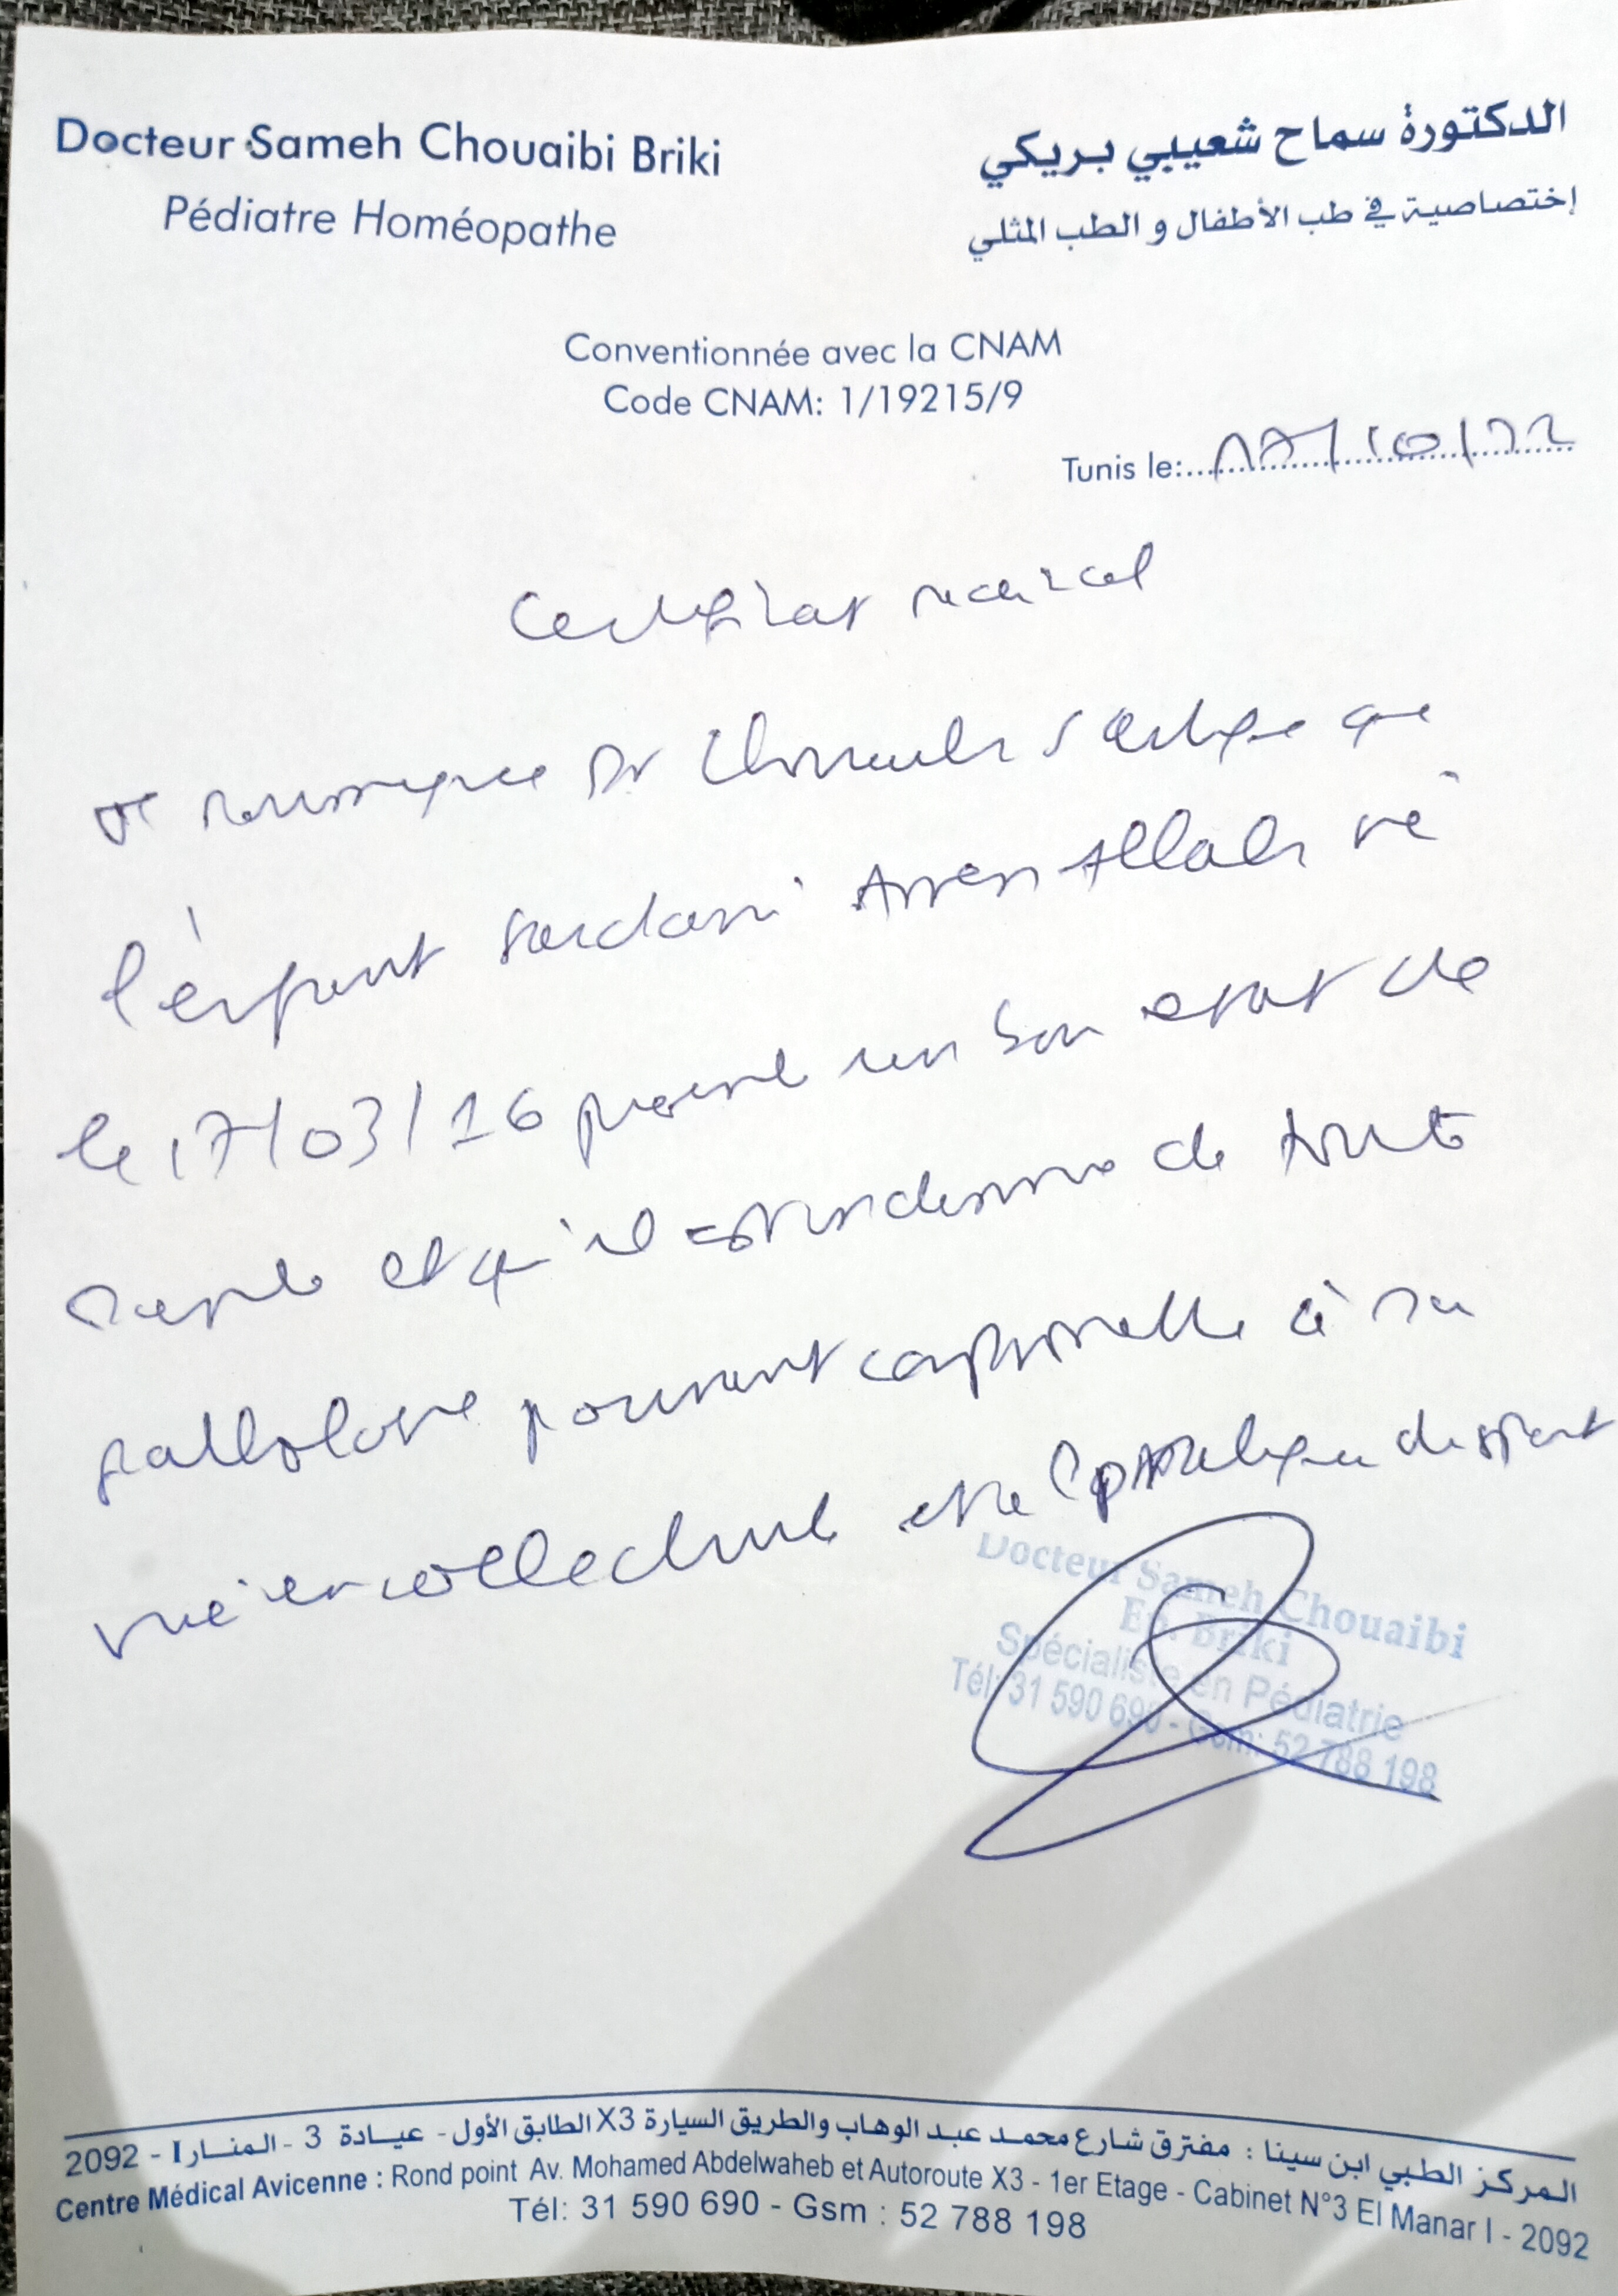 Docteur Sameh Chouaibi Briki
Pédiatre Homéopathe
الدكتورة سماح شعيبي بريكي
إختصاصية في طب الأطفال و الطب المثلي
Conventionnée avec la CNAM
Code CNAM: 1/19215/9
Tunis le: 17/10/22
Certificat medical
Je soussignée Dr Chouaibi S certifie que
l'enfant né
le 17/03/16 présente un bon etat de
santé et qu'il est indemne de toute
pathologie pouvant à sa
vie en collectivité et la pratique du sport
Docteur Sameh Chouaibi
Ep. Briki
Spécialiste en Pédiatrie
Tél: 31 590 690 - Gsm: 52 788 198
المركز الطبي ابن سينا : مفترق شارع محمد عبد الوهاب والطريق السيارة X3 الطابق الأول - عيادة 3 - المنار I - 2092
Centre Médical Avicenne : Rond point Av. Mohamed Abdelwaheb et Autoroute X3 - 1er Etage - Cabinet N°3 El Manar I - 2092
Tél: 31 590 690 - Gsm : 52 788 198